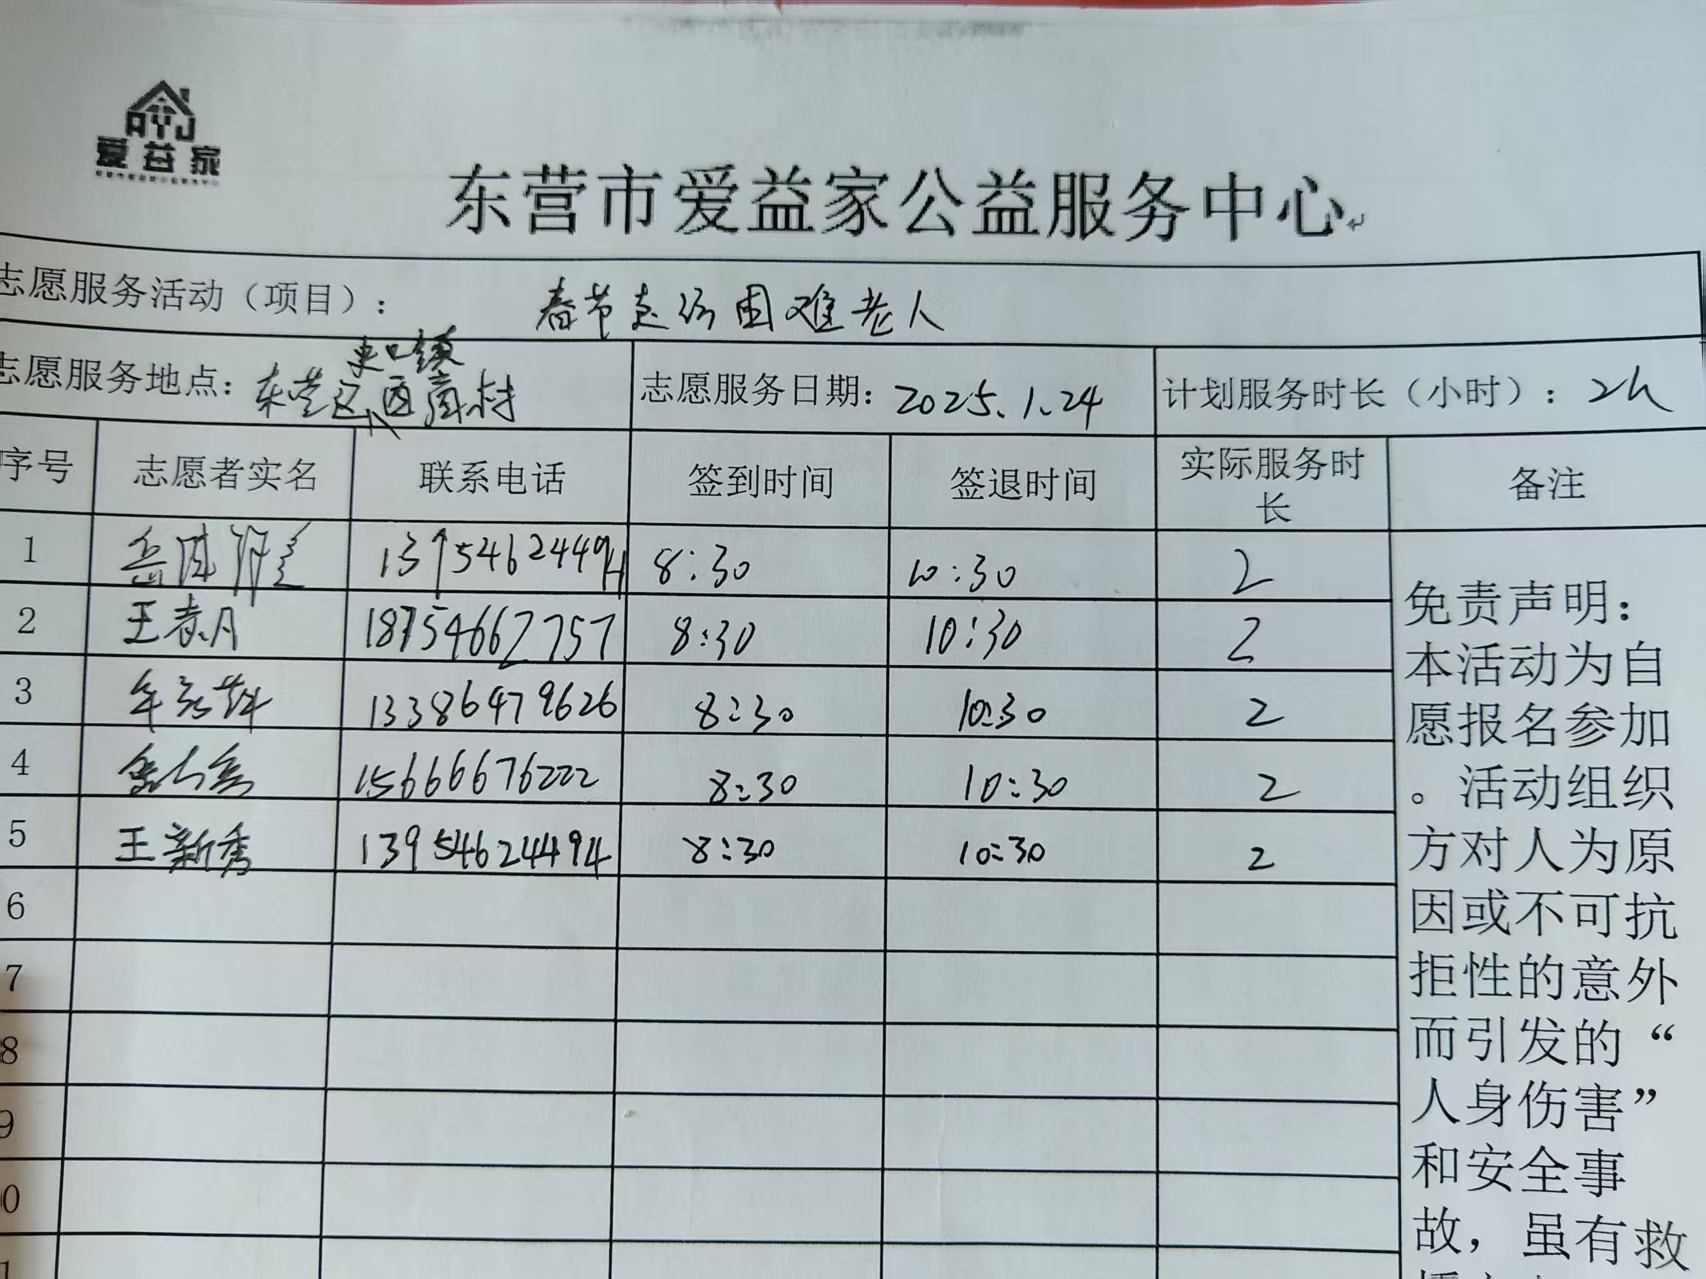 AYJ
爱益家
东营市爱益家公益服务中心
志愿服务活动（项目）： 春节走访困难老人
志愿服务地点：东营区史口镇西商村 志愿服务日期：2025.1.24 计划服务时长（小时）：2h
序号 志愿者实名 联系电话 签到时间 签退时间 实际服务时长 备注
1 13954624494 8:30 10:30 2
2 王春月 18754662757 8:30 10:30 2
3 13386479626 8:30 10:30 2
4 15666676222 8:30 10:30 2
5 王新秀 13954624494 8:30 10:30 2
6
7
8
9
0
1
免责声明：
本活动为自
愿报名参加
。活动组织
方对人为原
因或不可抗
拒性的意外
而引发的“
人身伤害”
和安全事
故，虽有救